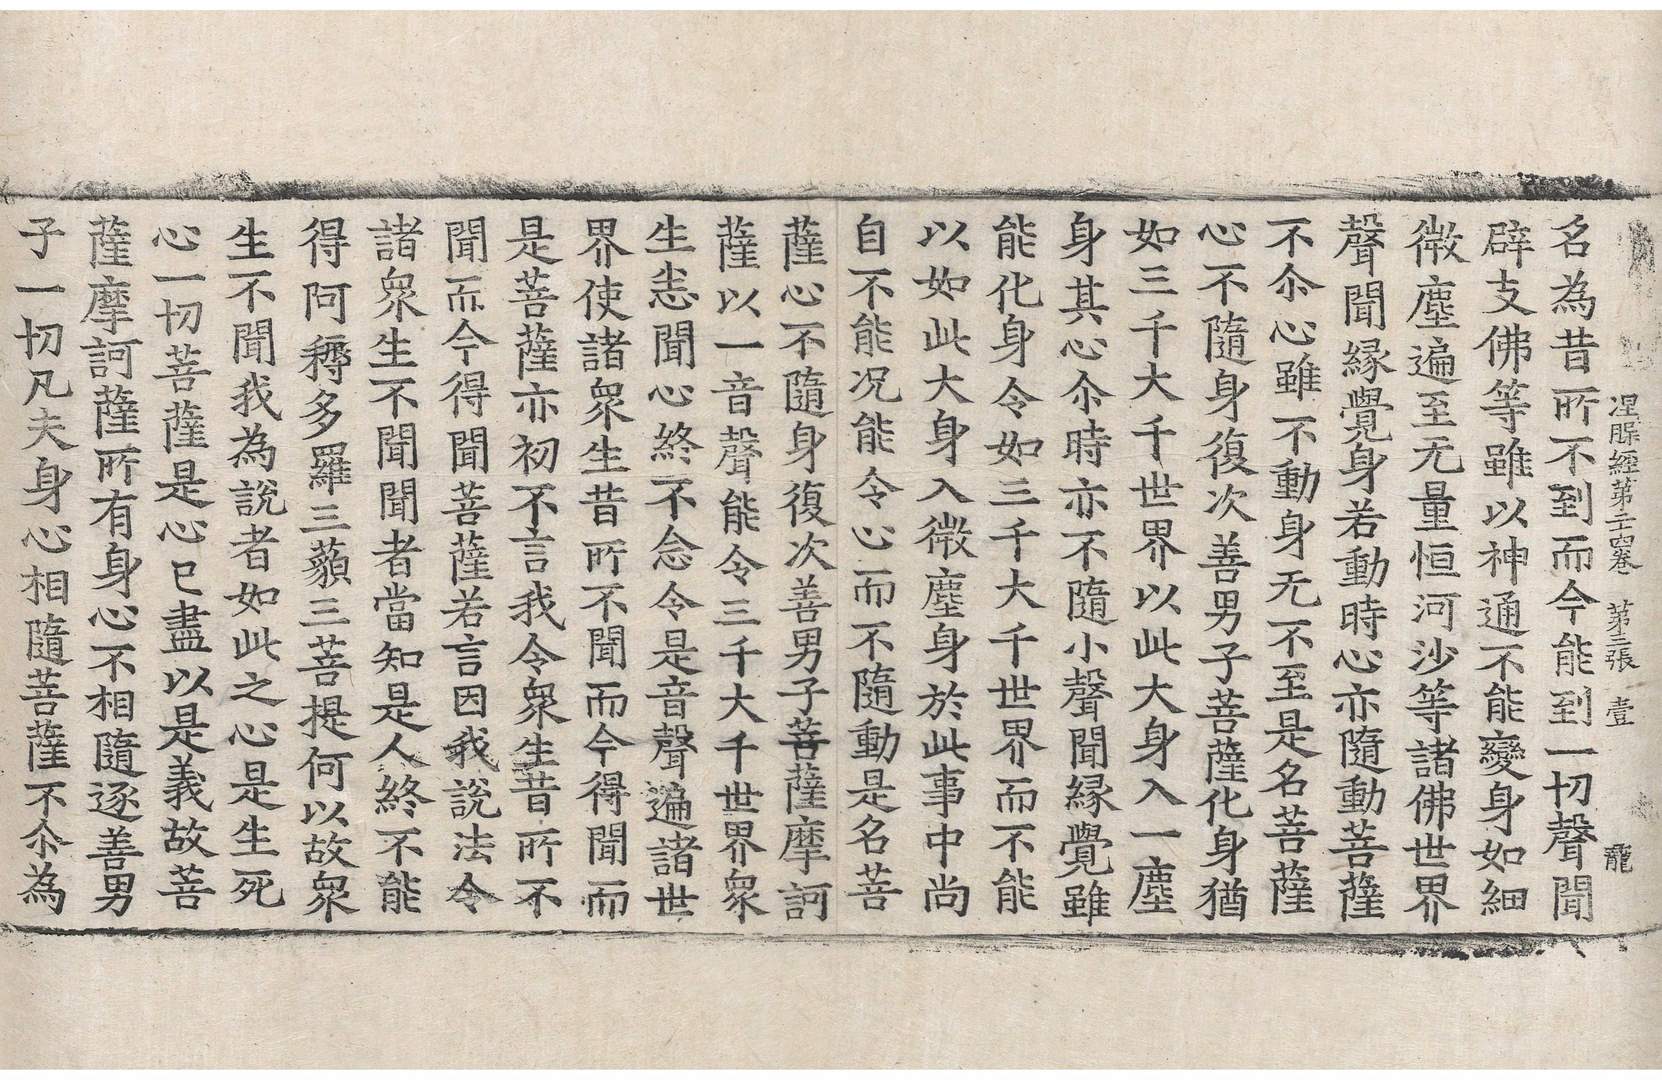 涅槃經第二十四卷 第三張 壹 龍
名為昔所不到而今能到一切聲聞
辟支佛等雖以神通不能變身如細
微塵遍至无量恒河沙等諸佛世界
聲聞緣覺身若動時心亦隨動菩薩
不尒心雖不動身无不至是名菩薩
心不隨身復次善男子菩薩化身猶
如三千大千世界以此大身入一塵
身其心尒時亦不隨小聲聞緣覺雖
能化身令如三千大千世界而不能
以如此大身入微塵身於此事中尚
自不能况能令心而不隨動是名菩
薩心不隨身復次善男子菩薩摩訶
薩以一音聲能令三千大千世界衆
生悉聞心終不念令是音聲遍諸世
界使諸衆生昔所不聞而今得聞而
是菩薩亦初不言我令衆生昔所不
聞而今得聞菩薩若言因我說法令
諸衆生不聞聞者當知是人終不能
得阿耨多羅三藐三菩提何以故衆
生不聞我為說者如此之心是生死
心一切菩薩是心已盡以是義故菩
薩摩訶薩所有身心不相隨逐善男
子一切凡夫身心相隨菩薩不尒為